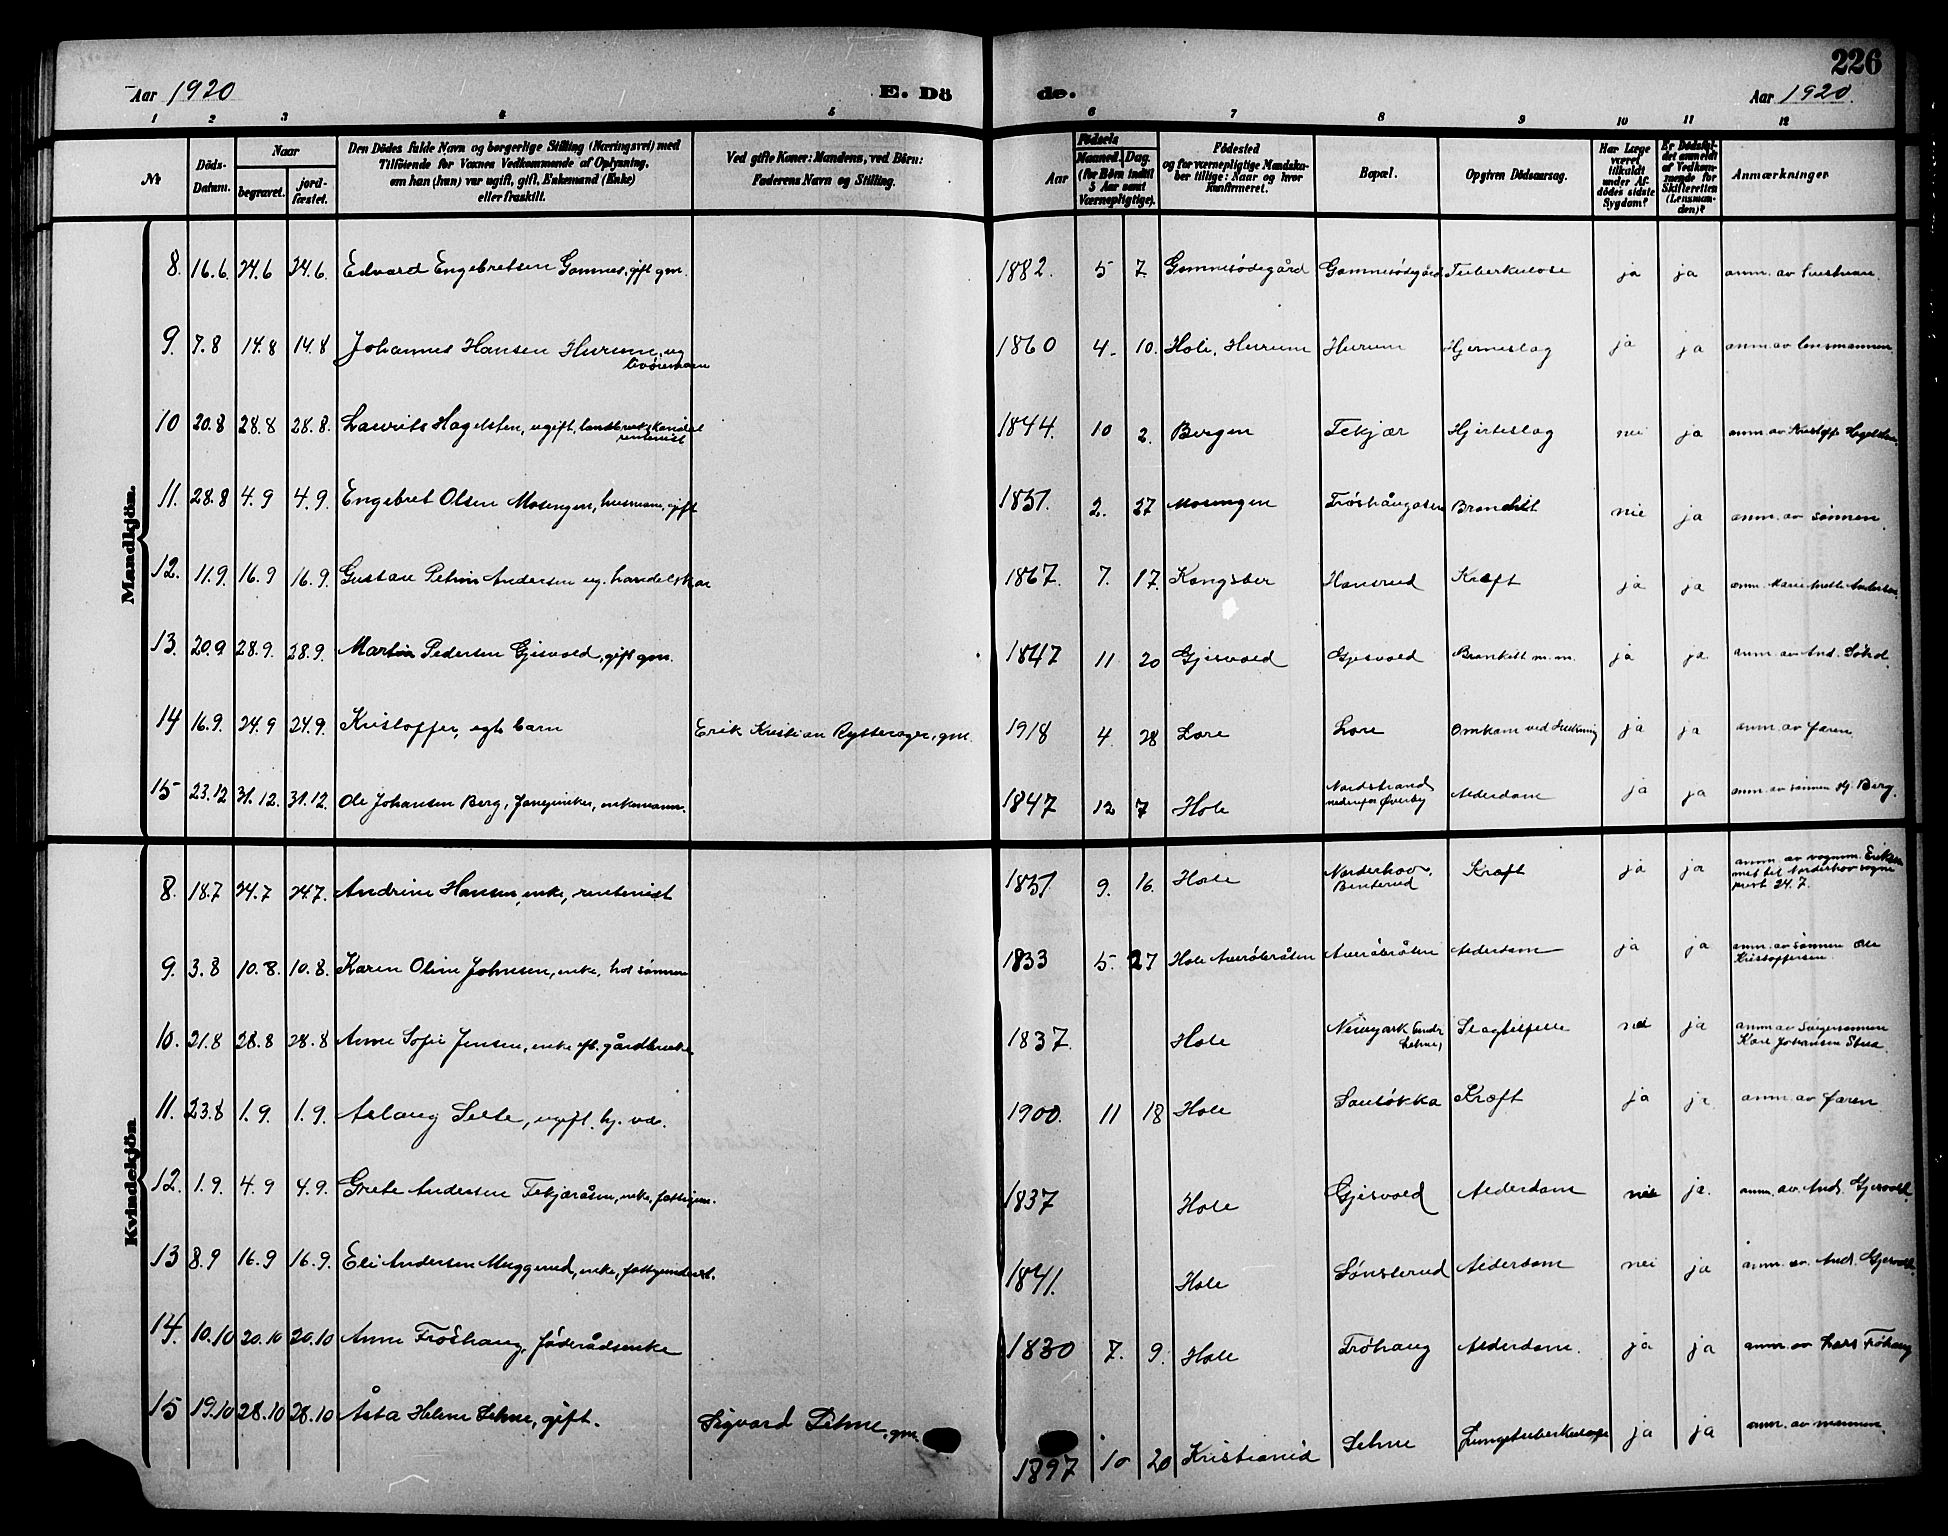 226
Aar 1920 E. Dö de. Aar 1920.
1 2 3 4 5 6 7 8 9 10 11 12
№ Döds-Datum. Naar begravet. jord-fæstet. Den Dödes fulde Navn og borgerlige Stilling (Næringsvei) med Tilföiende for Voxnes Vedkommende af Oplysning, om han (hun) var ugift, gift, Enkemand (Enke) eller fraskilt. Ved gifte Koner: Mandens, ved Börn: Faderens Navn og Stilling. Aar Födsels Maaned. Dag. (for Börn indtil 5 Aar samt Værnepligtige). Födested og for værnepligtige Mandskaber tillige: Naar og hvor konfirmeret. Bopæl. Opgiven Dödsaarsag. Har Læge været tilkaldt under Afdödes sidste Sygdom? Er Dödsfaldet anmeldt af Vedkommende for Skifteretten (Lensmanden)? Anmærkninger
Mandkjön.
8. 16.6. 24.6 24.6. Edvard Engebretsen Gomnes, gift gm. 1882. 5 7 Gomnesödegård Gomnesödegård Tuberkulose ja ja anm. av
9. 7.8 14.8 14.8 Johannes Hansen Hurum, ug 1860 4. 10. Hole, Hurum Hurum Hjerneslag ja ja anm. av lensmannen.
10 20.8 28.8 28.8. Laurits Hagelsten, ugift, landbrukskandidat rentenist 1844. 10 2. Bergen Tekjær Hjerteslag nei ja anm. av Kristoffe Hagelsten.
11. 28.8 4.9 4.9. Engebret Olsen Mosengen, husmann, gift 1851. 2. 27 Mosengen Fröshaugåsen Bronchit nei ja anm. av sönnen.
12. 11.9. 16.9 16.9. Gustav Petrin Andersen ug. handelskar 1867. 7. 17. Kongsber Hansrud Kræft ja ja anm. Marie Andersen.
13. 20.9 28.9. 28.9. Martin Pedersen Gjesvold, gift gm. 1847 11 20 Gjesvold Gjesvold Bronkitt m.m. ja ja. anm. av And. Löhol.
14 16.9. 24.9 24.9. Kristoffer, egte barn Erik Kristian Rytterager, gm. 1918 4. 28 Lore Lore Omkom ved drukning ja ja anm. av faren.
15 23.12 31.12. 31.12. Ole Johansen Berg, enkemann. 1847 12 7 Hole Nordstrand nedenfor Överby Alderdom ja ja anm. av sönnen Hj. Berg.
Kvindekjön
8. 18.7 24.7 24.7. Andrine Hansen, enke, rentenist 1851 9. 16. Hole Norderhov, Benterud Kræft ja ja anm. av sognepr. Eriksen met til Norderhov sogneprest 24.7.
9. 3.8 10.8. 10.8. Karen Oline Johnsen, enke, hos sönnen 1833 5. 27 Hole Averöbråten Averöbråten Alderdom ja ja anm. av sönnen Ole Kristoffersen.
10. 21.8 28.8 28.8 Anne Sofie Jensen, enke eft. gårdbruker 1837. Hole Newyork under Lehne, Slagtilfelle nei ja anm. av svigersönnen Karl Johansen
11. 23.8 1.9. 1.9. Aslaug Selte, ugift hj. vær. 1900. 11 18 Hole Sautökka Kræft ja ja anm. av faren
12. 1.9. 4.9 4.9. Grete Andersen Tekjæråsen, enke, fattigem. 1837 Hole Gjesvold Alderdom nei ja. anm. av And. Gjesvold.
13 8.9 16.9 16.9. Eli Andersen Muggerud, enke, fattigunderst. 1841. Hole Sönsterud Alderdom nei ja anm. av. And. Gjesvold.
14. 10.10 20.10 20.10 Anne Fröshaug, föderådsenke 1830 7. 9. Hole Fröhaug Alderdom. ja ja anm. av Lars Fröhaug
15 19.10 28.10 28.10 Åsta Helene Lehne, gift. Sigvard Lehne, gm. 1897 10 20 Kristiania Lehne Lungetuberkulose ja ja anm. av mannen.